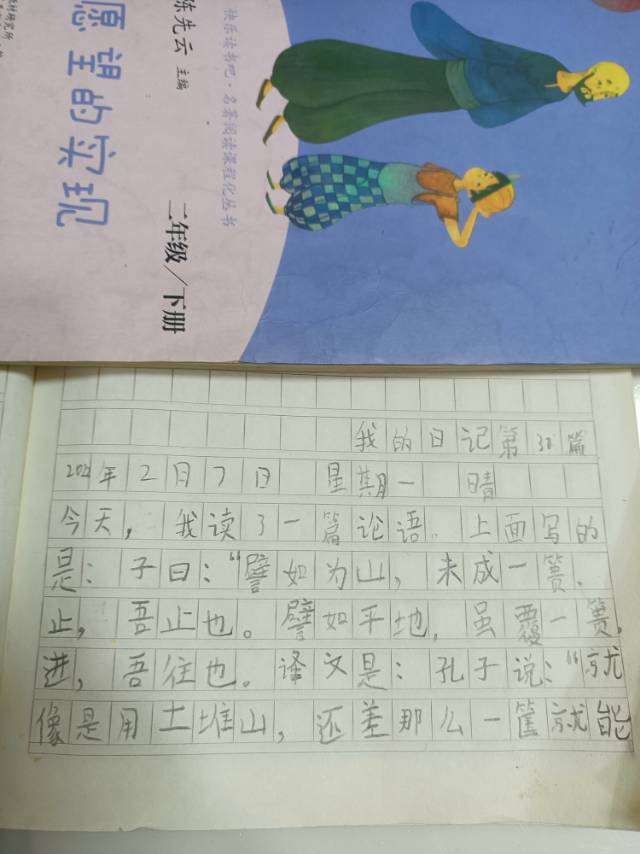 陈先云 主编
快乐读书吧·名著阅读课程化丛书
愿望的实现
二年级/下册
我的日记第30篇
年2月7日 星期一 晴
今天，我读了一篇论语。上面写的
是：子曰：“譬如为山，未成一篑，
止，吾止也。譬如平地，虽覆一篑，
进，吾往也。译文是：孔子说：“就
像是用土堆山，还差那么一筐就能